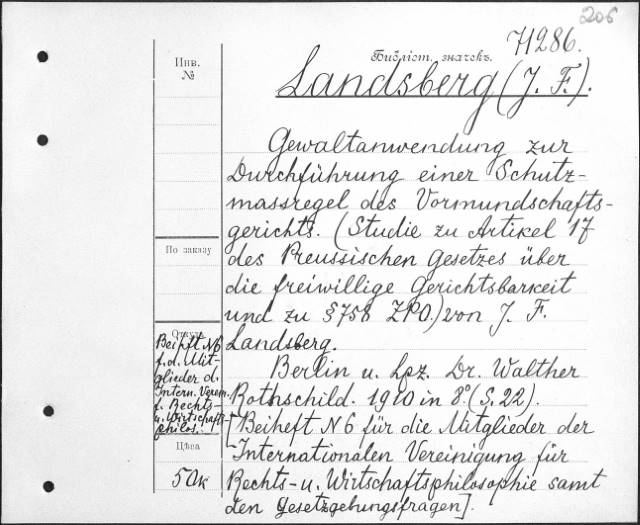 206
71286.
Инв.
№
Библіот. значекъ.
Landsberg (J. F.).
Gewaltanwendung zur
Durchführung einer Schutz-
massregel des Vormundschafts-
gerichts. (Studie zu Artikel 17
des Preussischen Gesetzes über
die freiwillige Gerichtsbarkeit
und zu § 758 ZPO.) von J. F.
Landsberg.
Berlin u. Lpz. Dr. Walther
Rothschild. 1910 in 8°. (S. 22).
[Beiheft N 6 für die Mitglieder der
Internationalen Vereinigung für
Rechts- u. Wirtschaftsphilosophie samt
den Gesetzgebungsfragen].
По заказу
Откуда
Beiheft N6
f. d. Mit-
glieder d.
Intern. Verein.
f. Rechts-
u. Wirtschafts-
philos.
Цѣна
50 к